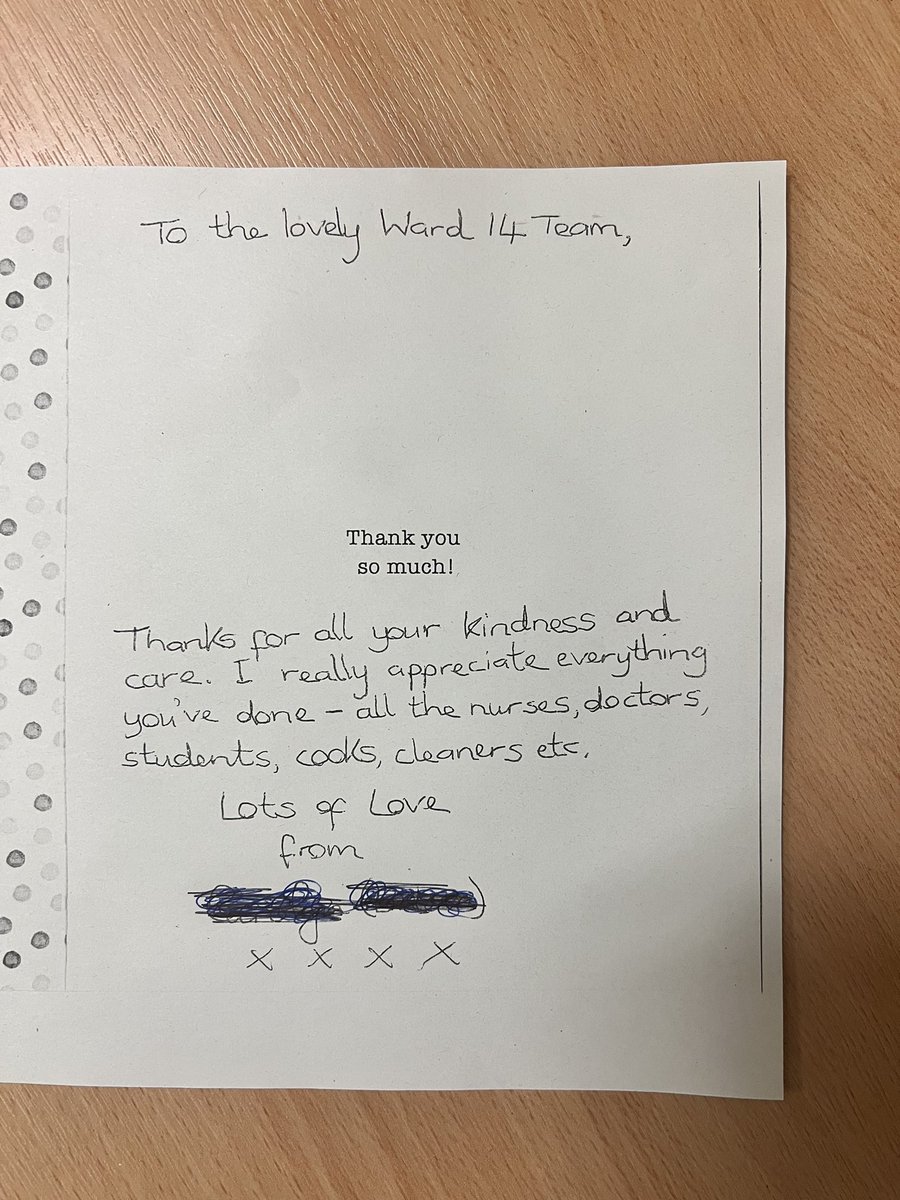 To the lovely Ward 14 Team,
Thank you
so much!
Thanks for all your kindness and
care. I really appreciate everything
you've done - all the nurses, doctors,
students, cooks, cleaners etc.
Lots of Love
from
x x x x